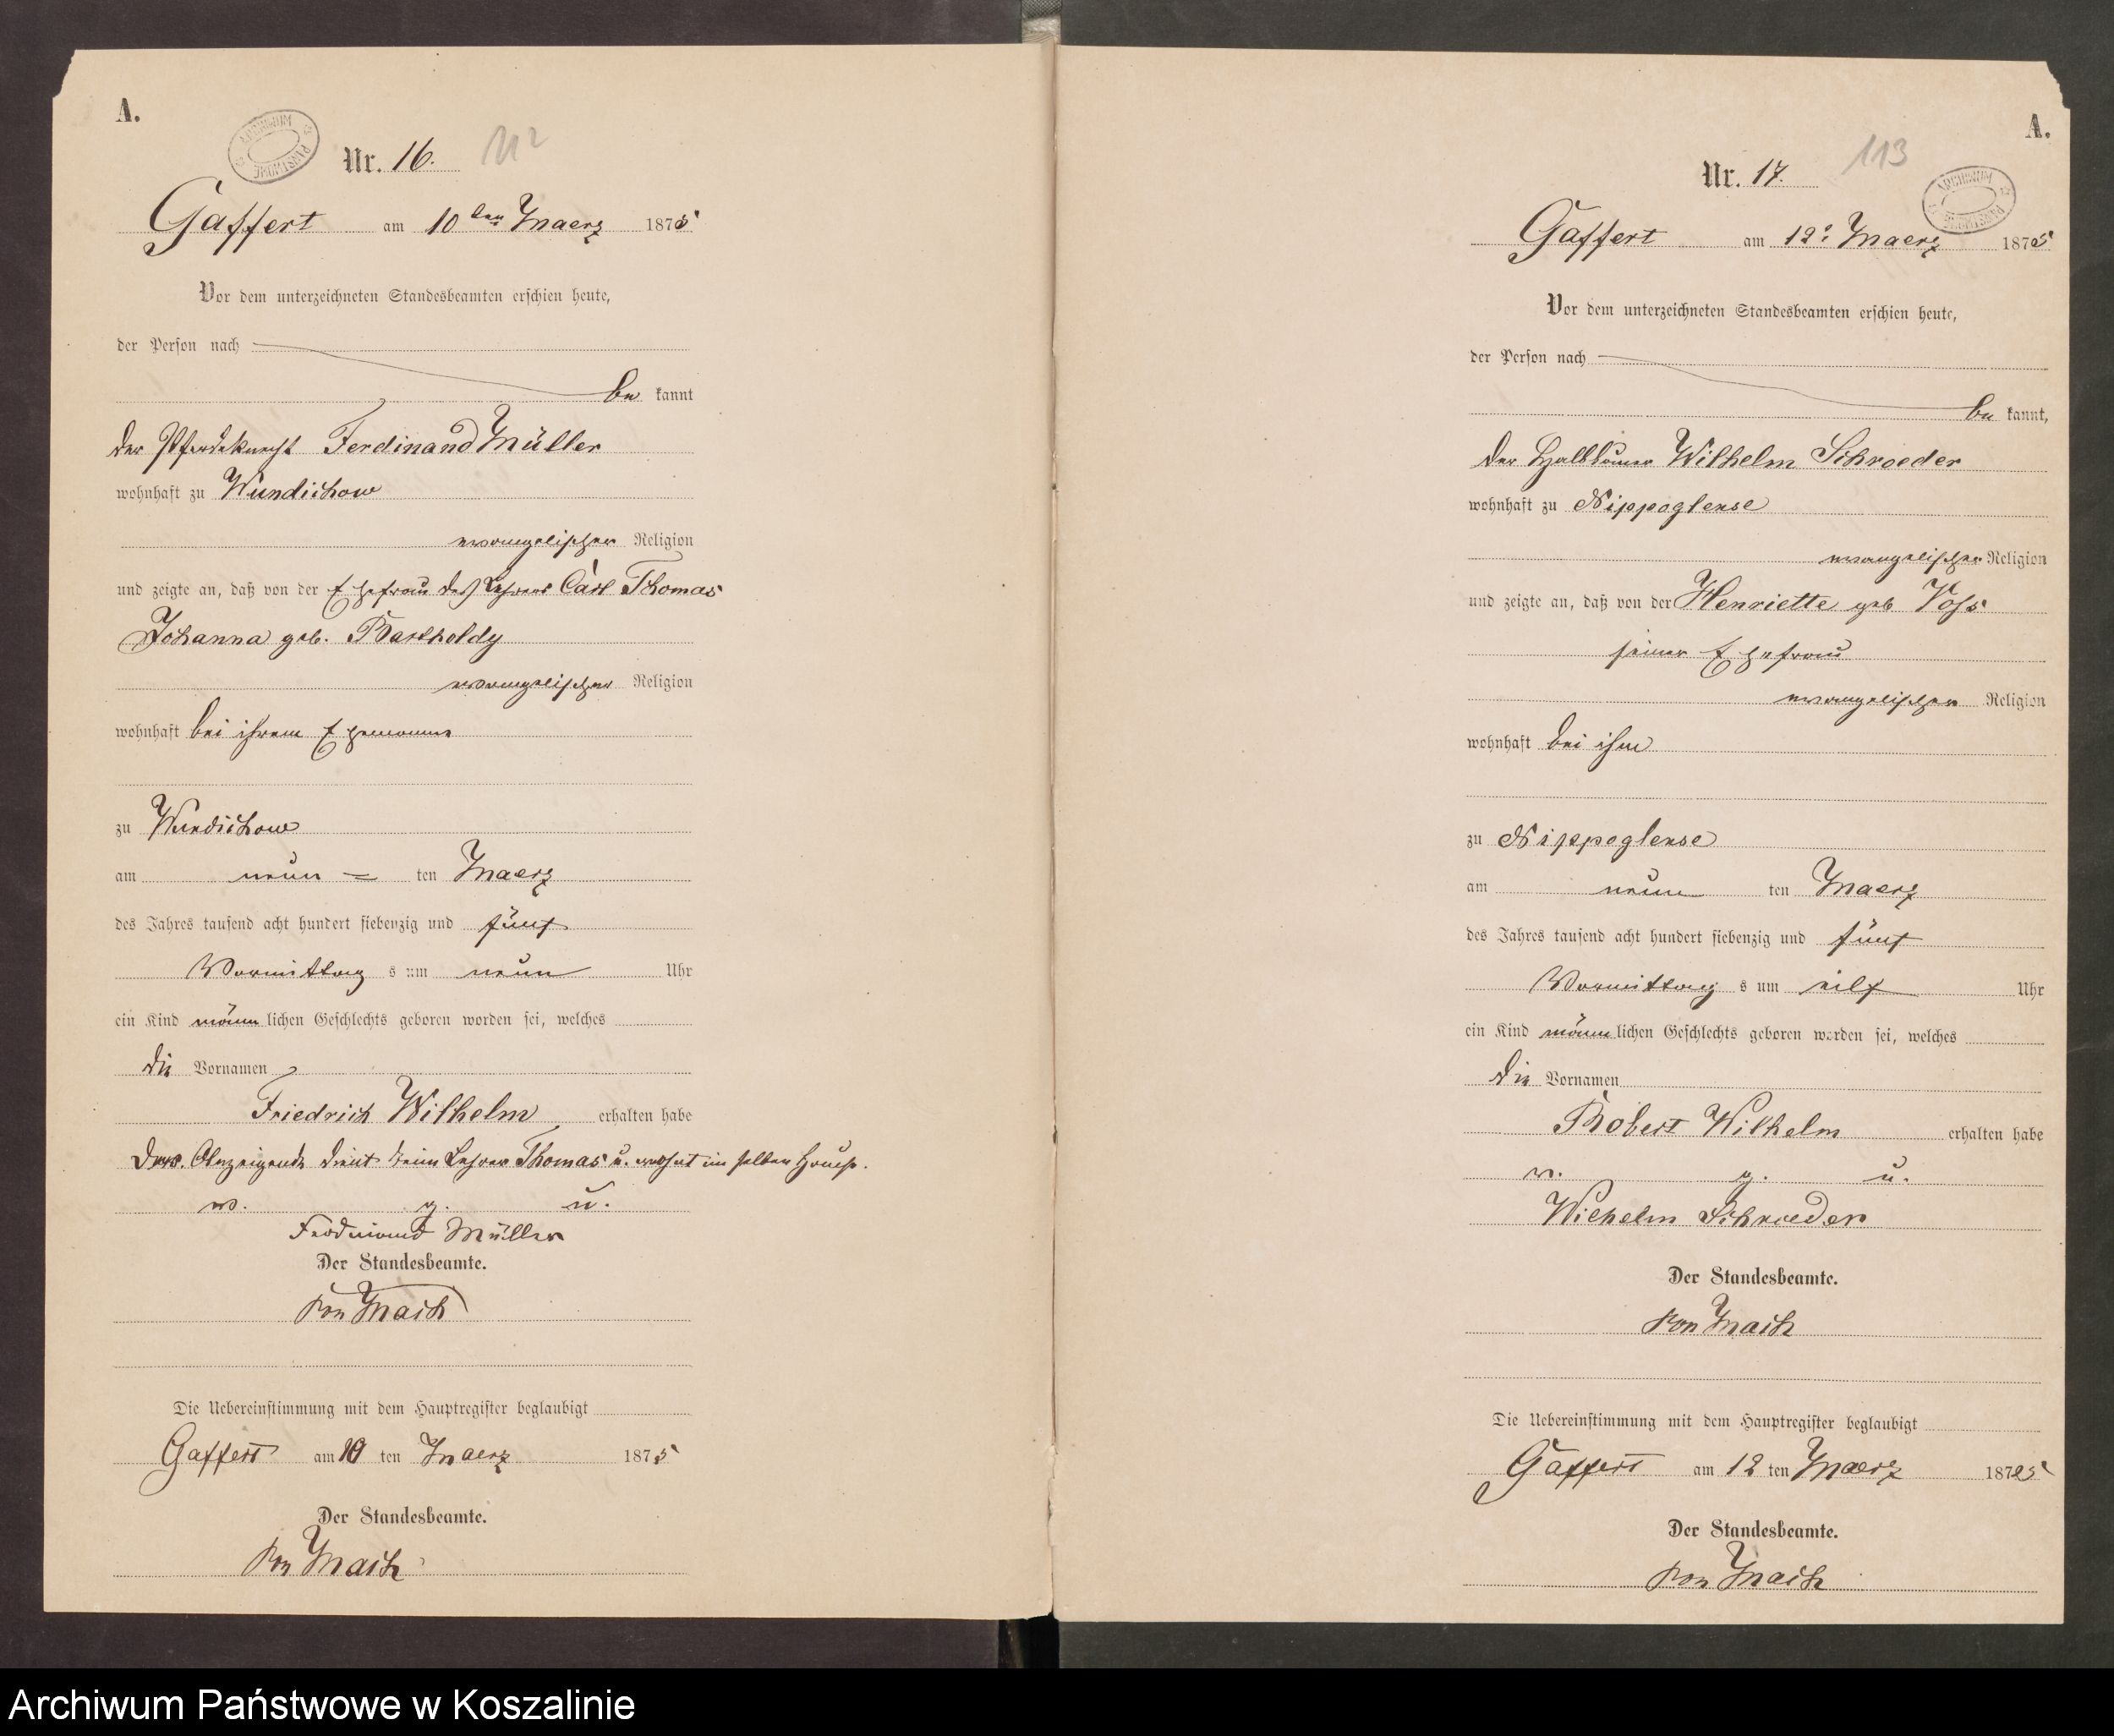 A.
ARCHIWUM PAŃSTWOWE
Nr. 16. 112
Gaffert am 10ten Maerz 1875
Vor dem unterzeichneten Standesbeamten erschien heute,
der Person nach
be kannt
der Pferdeknecht Ferdinand Müller
wohnhaft zu Wundichow
evangelischer Religion
und zeigte an, daß von der Ehefrau des Lehrers Carl Thomas
Johanna geb. Bartholdy
evangelischer Religion
wohnhaft bei ihrem Ehemanne
zu Wundichow
am neun = ten Maerz
des Jahres tausend acht hundert siebenzig und fünf
Vormittag s um neun Uhr
ein Kind männ lichen Geschlechts geboren worden sei, welches
die Vornamen
Friedrich Wilhelm erhalten habe
Anzeigende dient beim Lehrer Thomas u. wohnt im selben Hause.
v. g. u.
Ferdinand Müller
Der Standesbeamte.
von Mach
Die Uebereinstimmung mit dem Hauptregister beglaubigt
Gaffert am 10 ten Maerz 1875
Der Standesbeamte.
von Mach
A.
Nr. 17. 113
ARCHIWUM PAŃSTWOWE
Gaffert am 12. Maerz 1875
Vor dem unterzeichneten Standesbeamten erschien heute,
der Person nach
be kannt,
der Wilhelm Schroeder
wohnhaft zu Nippoglense
evangelischer Religion
und zeigte an, daß von der Henriette geb Voss
seiner Ehefrau
evangelischer Religion
wohnhaft bei ihm
zu Nippoglense
am neun ten Maerz
des Jahres tausend acht hundert siebenzig und fünf
Vormittag s um eilf Uhr
ein Kind männ lichen Geschlechts geboren worden sei, welches
die Vornamen
Robert Wilhelm erhalten habe
v. g. u.
Wilhelm Schroeder
Der Standesbeamte.
von Mach
Die Uebereinstimmung mit dem Hauptregister beglaubigt
Gaffert am 12 ten Maerz 1875
Der Standesbeamte.
von Mach
Archiwum Państwowe w Koszalinie